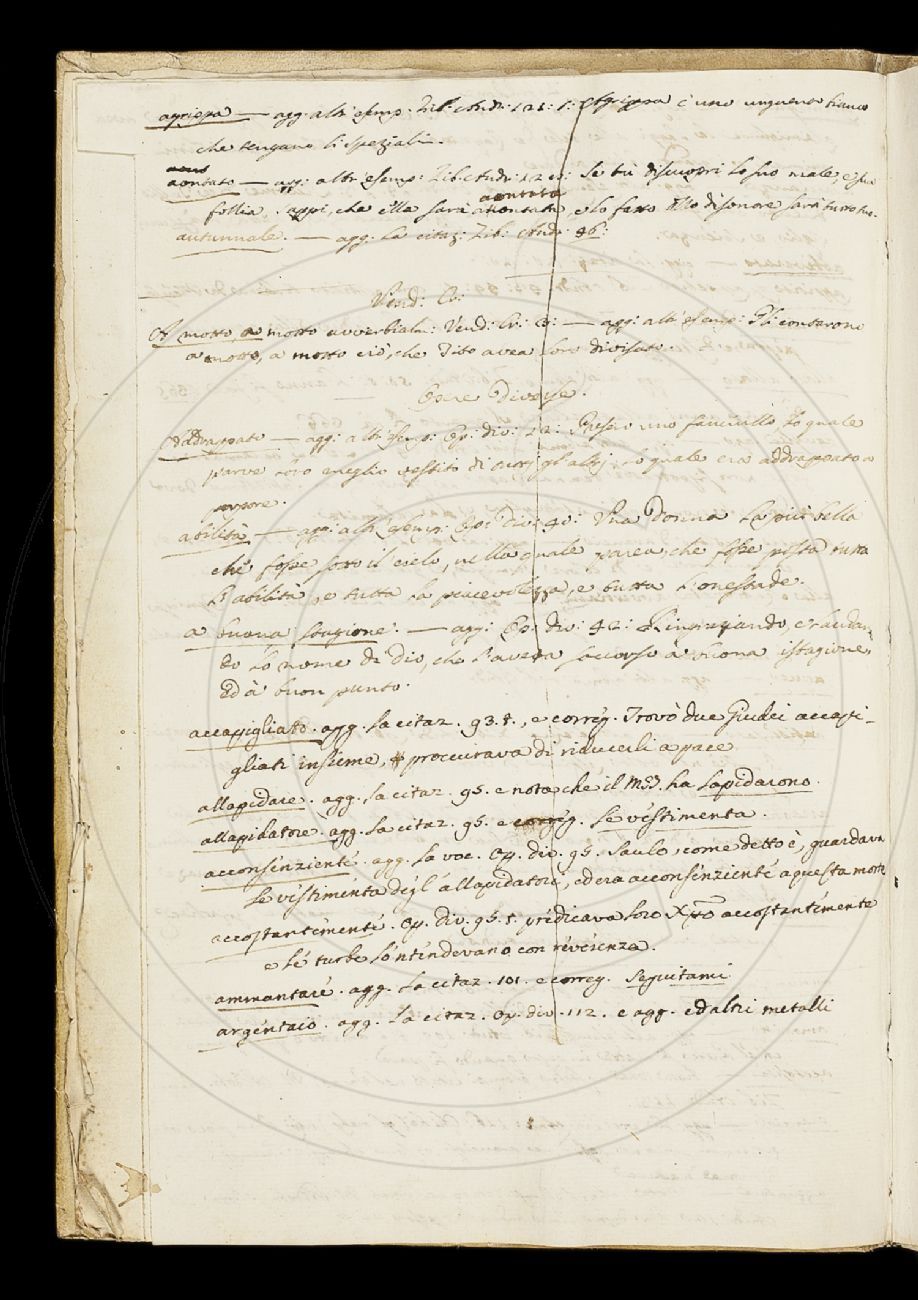 agrippa — agg: altr' esemp: Lib: Andr: 121: t: Agrippa è uno unguento bianco
che tengano li speziali.
aontato — agg: altr' esemp: Lib: Andr: se tu discuopri lo suo male, e sua
aontata
follia, appi, che ella sarà aontata, e lo fatto e lo disonore sarà tutto tuo.
autunnale. — agg: la citaz: Lib: Andr: 46:
Vend: Cr:
A motto, a motto avverbialm: Vend: Cr: — agg: altr' esemp: Gli contarono
a motto, a motto ciò, che Tito avea loro divisato.
Opere Diverse.
Addrappato — agg: altr' esemp: Op: div: 12: Presero uno fanciullo lo quale
parve loro meglio vestito di tutti gl' altri, lo quale era addrappato a
abilità — agg: altr' esemp: Op: Div: 40: Una Donna la più bella
che fosse sotto il cielo, nella quale parea, che fosse posta tutta
l' abilità, e tutta la piacevolezza, e tutta l' onestade.
a buona stagione. — agg: Op: div: 42: Ringraziando, e laudan
do lo nome di Dio, che l' aveva soccorso a buona istagione,
ed à buon punto.
accapigliato. agg. la citaz. 93. t., e correg. Trovò due Giudei accapi-
gliati insieme, proccurava di riducerli a pace
allapidare. agg. la citaz. 95. e nota che il Ms. ha lapidarono.
allapidatore. agg. la citaz. 95. e correg. le vestimenta.
acconsenziente. agg. la voc. Op. div. 95. Saulo, come detto è, guardava
le vestimenta degl' allapidatori, ed era acconsenziente a questa morte
accostantemente. Op. Div. 95. t. predicava loro Xpto accostantemente
e le turbe lo 'ntendevano con reverenza.
ammantare. agg. la citaz. 101. e correg. seguitami
argentaio. agg. la citaz. Op. div. 112. e agg. ed altri metalli